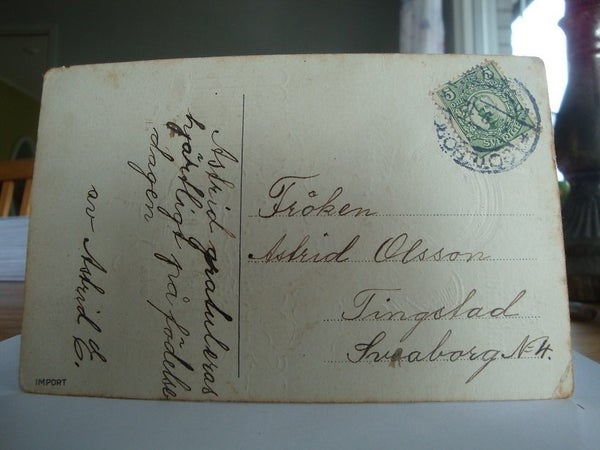 Astrid gratuleras
hjärtligt på födelse
dagen
av Astrid O.
Fröken
Astrid Olsson
Tingstad
Sveaborg N-4.
IMPORT
5
5